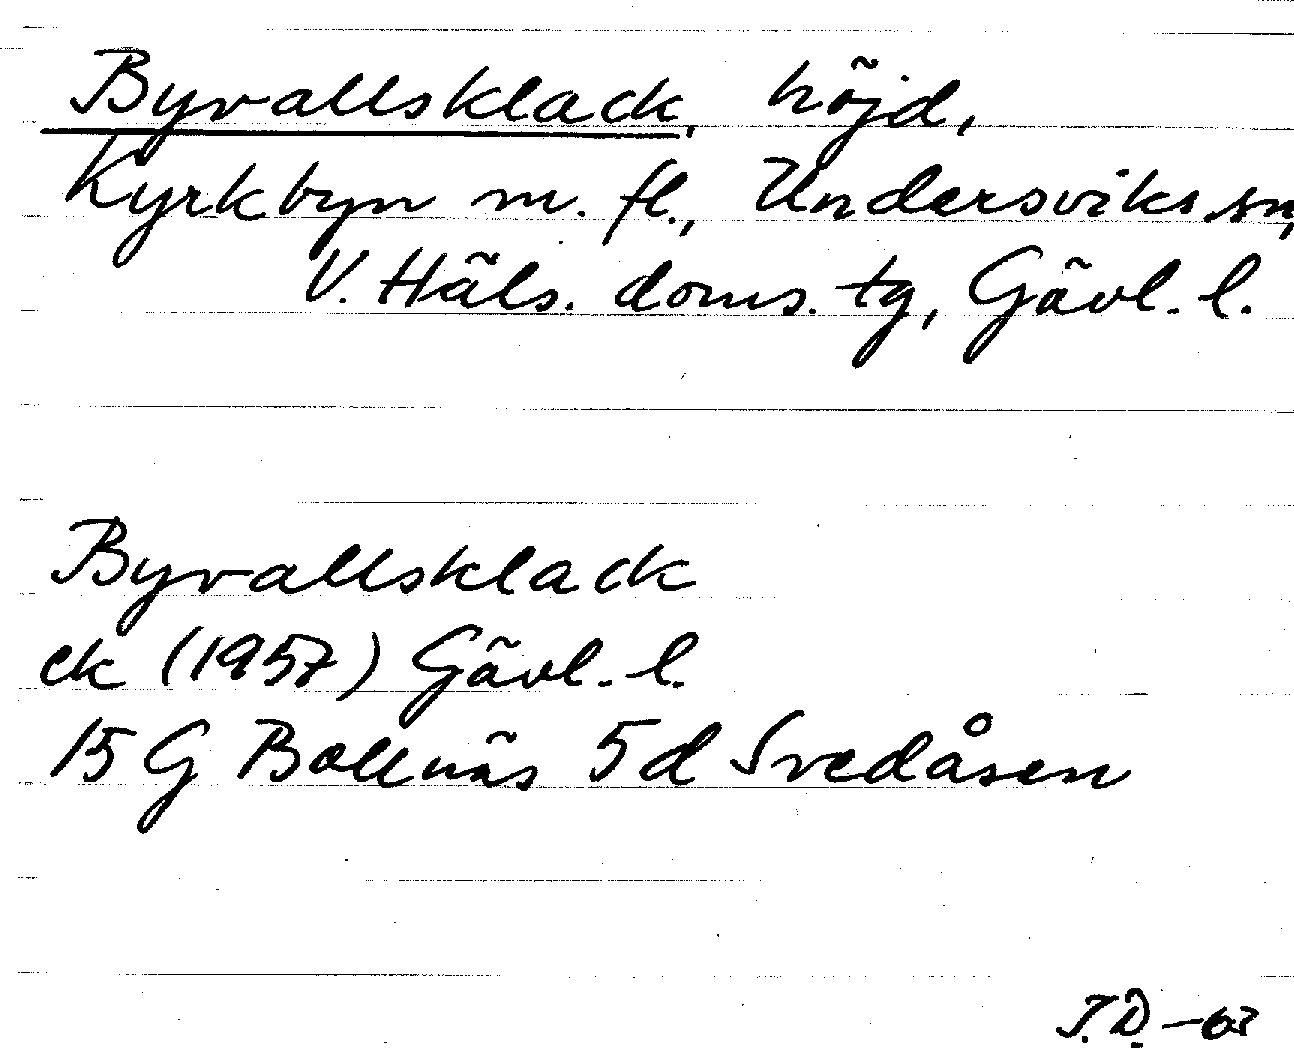 Byvallsklack, höjd,
Kyrkbyn m. fl., Undersviks sn,
V. Häls. doms. tg, Gävl. l.
Byvallsklack
ek (1957) Gävl. l.
15 G Bollnäs 5d Svedåsen
J.D. -63